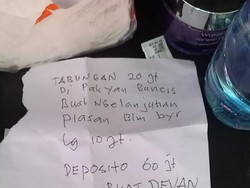 TABUNGAN 20 jt
Di PaK yan Buncis
Buat Ngelanjutan
plasan Blm byr
Lg 10 jt.
DEPOSITO 60 jt
BUAT DEVAN